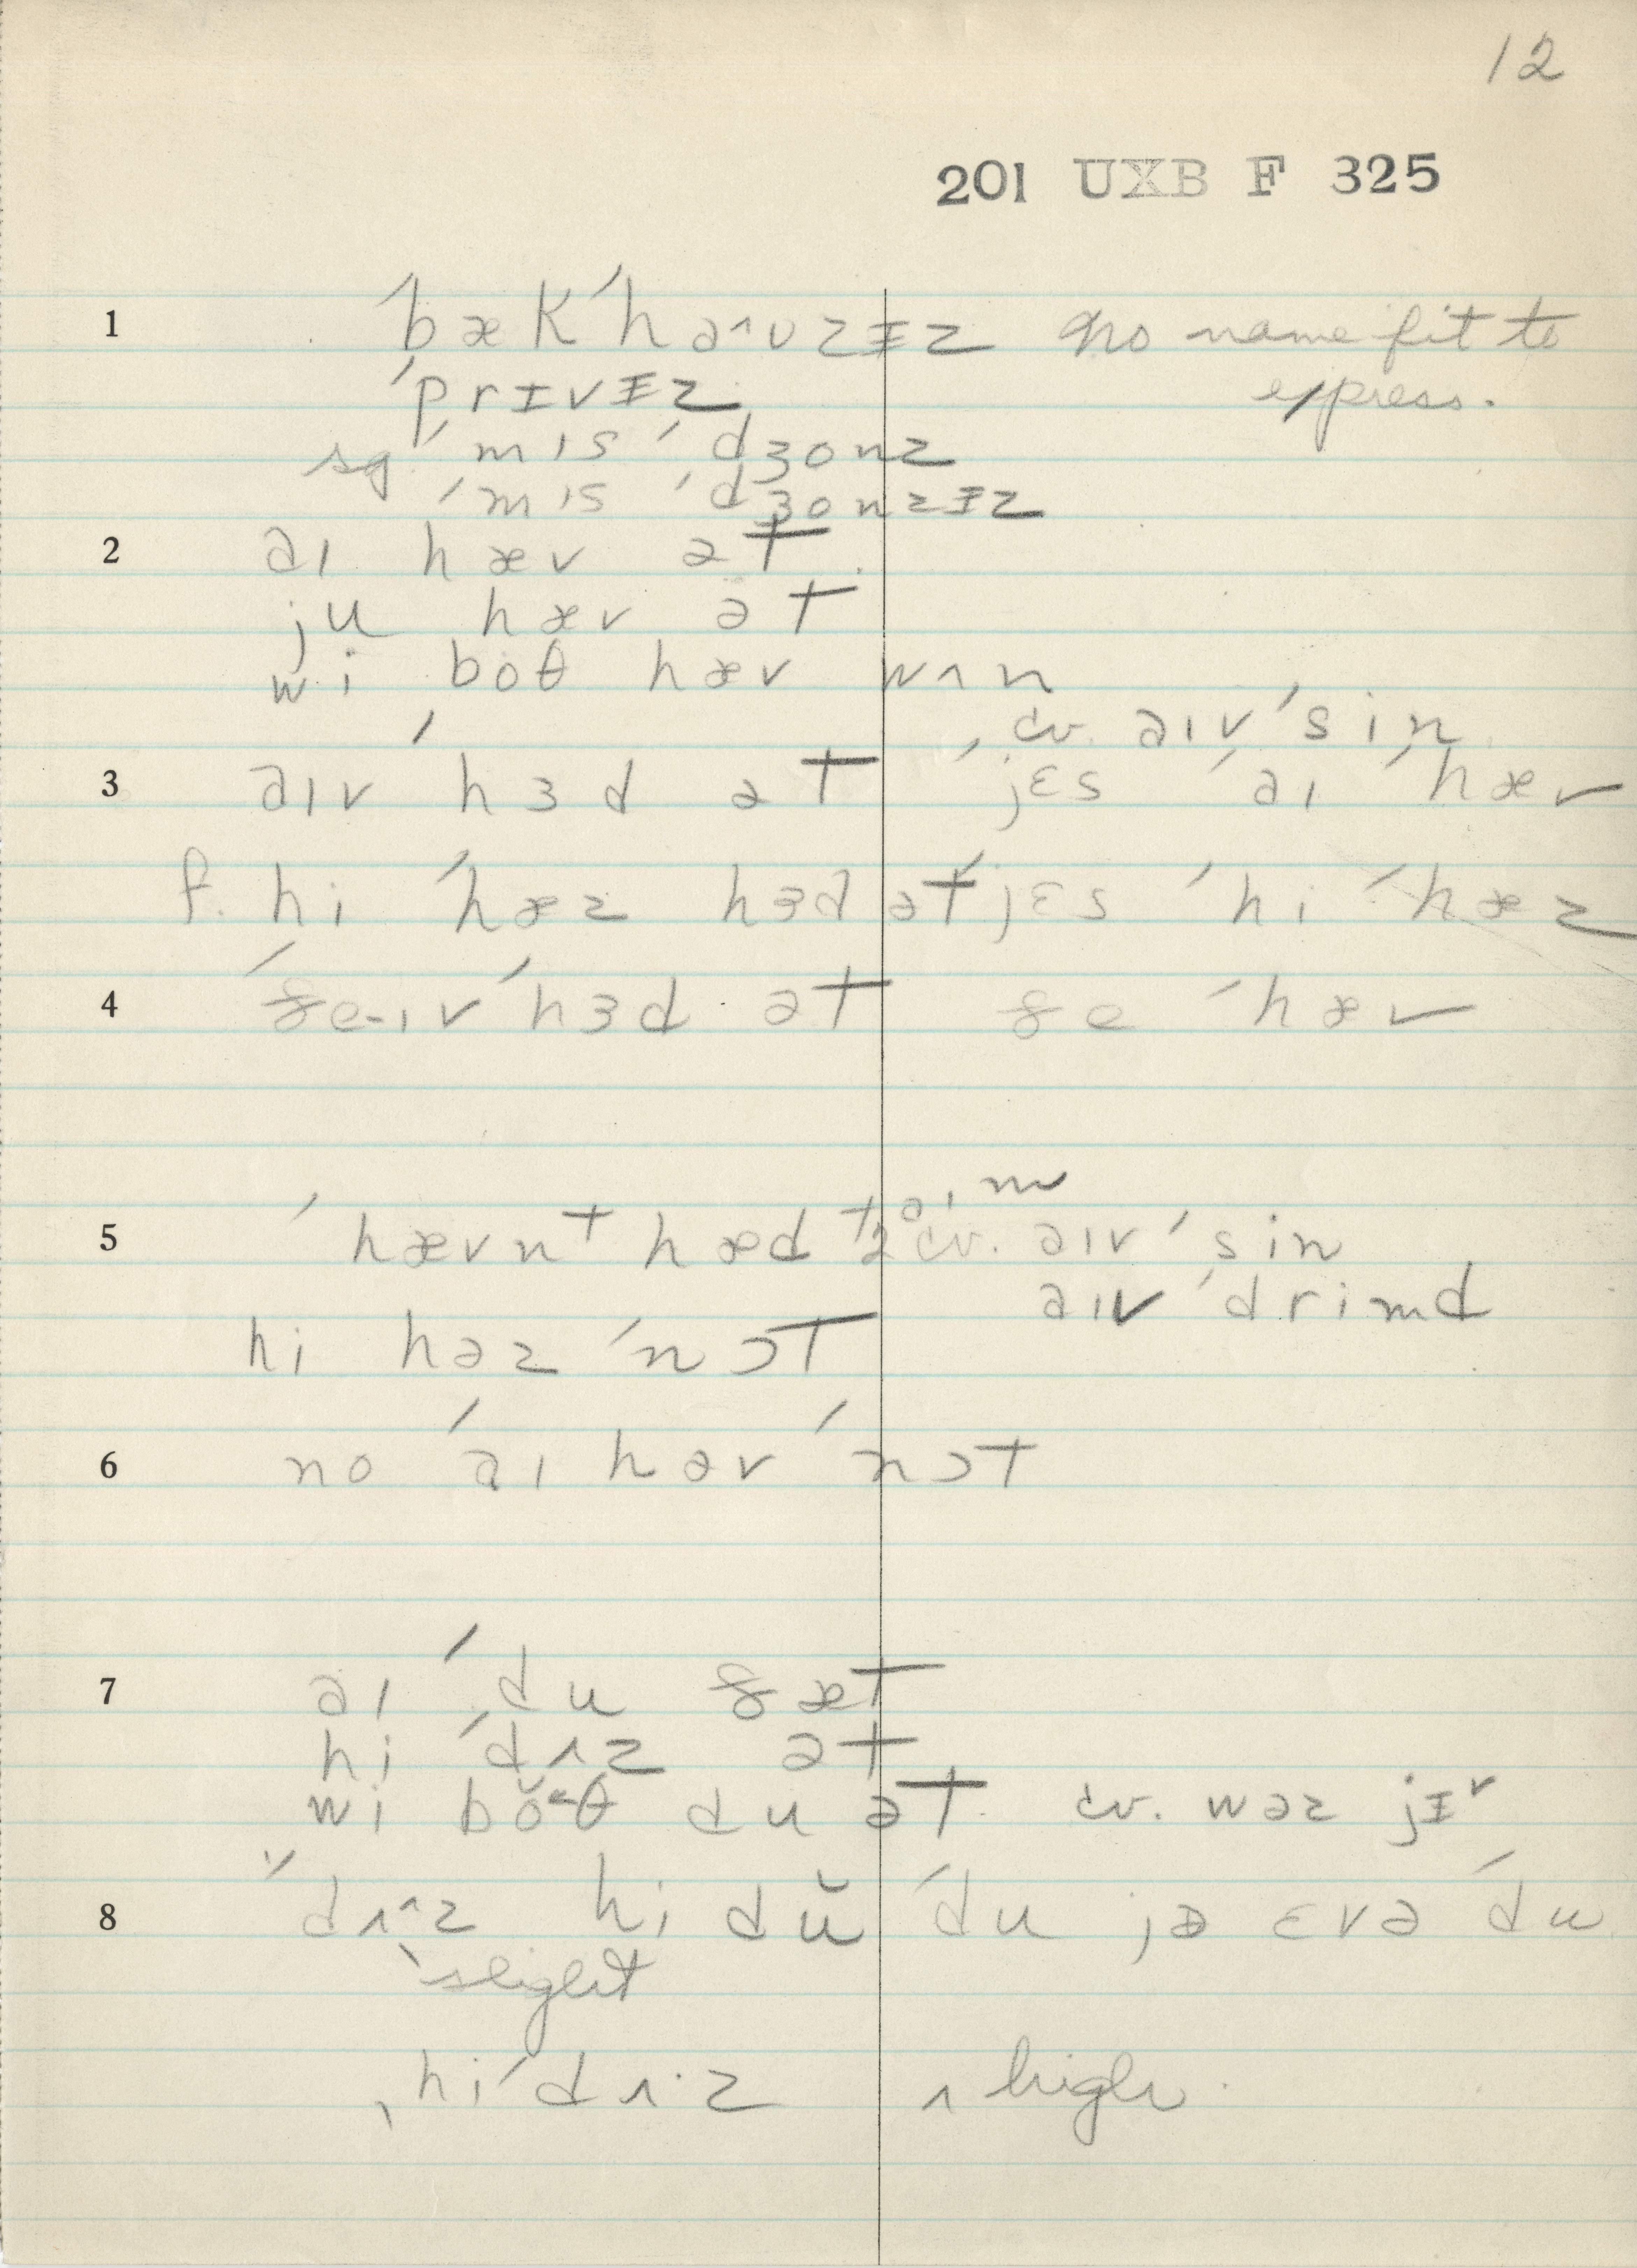 12
201 UXB F 325
1 ˈbækˈha^ʊzɪ̵z no name fit to
ˈprɪvɪ̵z express.
sg ˈmɪs ˈdʒonz
ˈmɪs ˈdʒonzɪ̵z
2 aɪ hæv ət
ju hæv ət
wi boθ hæv wʌn
cv. aɪvˈsin
3 aɪvˈhɜd ət ˈjɛs ˈaɪ ˈhæv
f. hi ˈhæz hɜd ət jɛs ˈhi ˈhæz
4 ˈðe-ɪvˈhɜd ət ðe ˈhæv
aɪm
5 ˈhævnt hæd cv. aɪvˈsin
aɪvˈdrimd
hi həz ˈnɔt
6 no ˈaɪ həv ˈnɔt
7 aɪ ˈdu ðæt
hi ˈdʌz ət
wi bŏ^θ du ət cv. wəz jɪ̵r
8 ˈdʌ^z hi dŭ ˈdu jə ɛvə ˈdu
slight
ˌhiˈdʌ·z ʌ high.